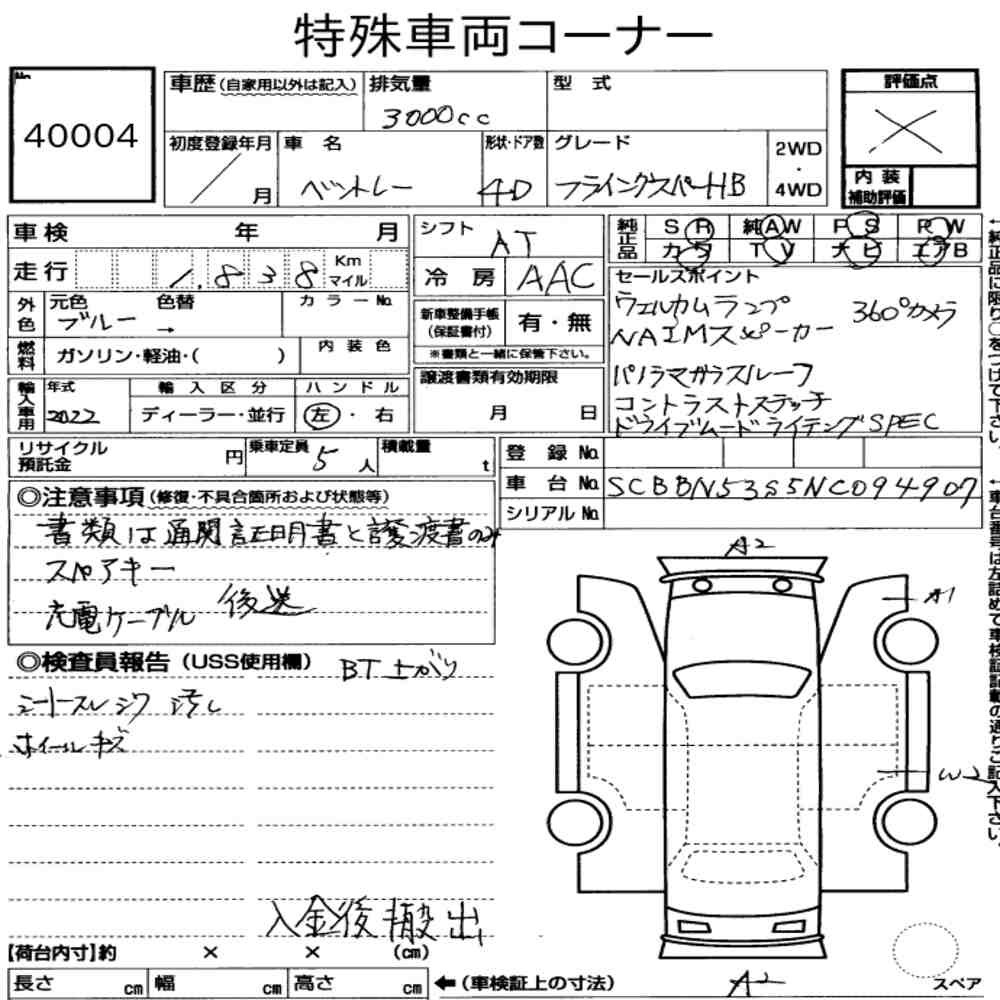 特殊車両コーナー
No.
40004
車歴(自家用以外は記入) 排気量 型 式 評価点
3000cc
初度登録年月 車 名 形状・ドア数 グレード 2WD・4WD
/ 月 ベントレー 4D フライングスパーHB
内装補助評価
車検 年 月 シフト AT
純正品 SR 純AW PS PW
カワ TV ナビ エアB
走行 1.838 Km マイル 冷房 AAC
セールスポイント
ウェルカムランプ 360°カメラ
NAIMスピーカー
パノラマガラスルーフ
コントラストステッチ
ドライブムードライテングSPEC
外色 元色 色替 カラーNo.
ブルー →
新車整備手帳(保証書付) 有・無
※書類と一緒に保管下さい。
燃料 ガソリン・軽油・( ) 内装色
譲渡書類有効期限
月 日
輸入車用 年式 輸入区分 ハンドル
2022 ディーラー・並行 左・右
リサイクル預託金 円 乗車定員 5人 積載量 t
登録No.
車台No. SCBBN53S5NC094907
シリアルNo.
◎注意事項(修復・不具合箇所および状態等)
書類は通関証明書と譲渡書のみ
スペアキー
充電ケーブル 後送
◎検査員報告(USS使用欄) BT上がり
シートスレシワ 汚レ
ホイールキズ
入金後搬出
A2
A1
W2
A2
スペア
【荷台内寸】約 × × (cm)
長さ cm 幅 cm 高さ cm ←(車検証上の寸法)
←純正品に限り○をつけて下さい。
←車台番号は左詰めで車検証記載の通りご記入下さい。